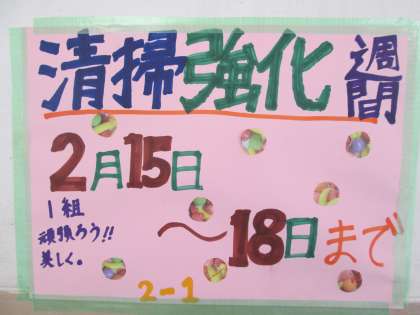 清掃強化週間
2月15日
～18日まで
1組
頑張ろう!!
美しく。
2-1